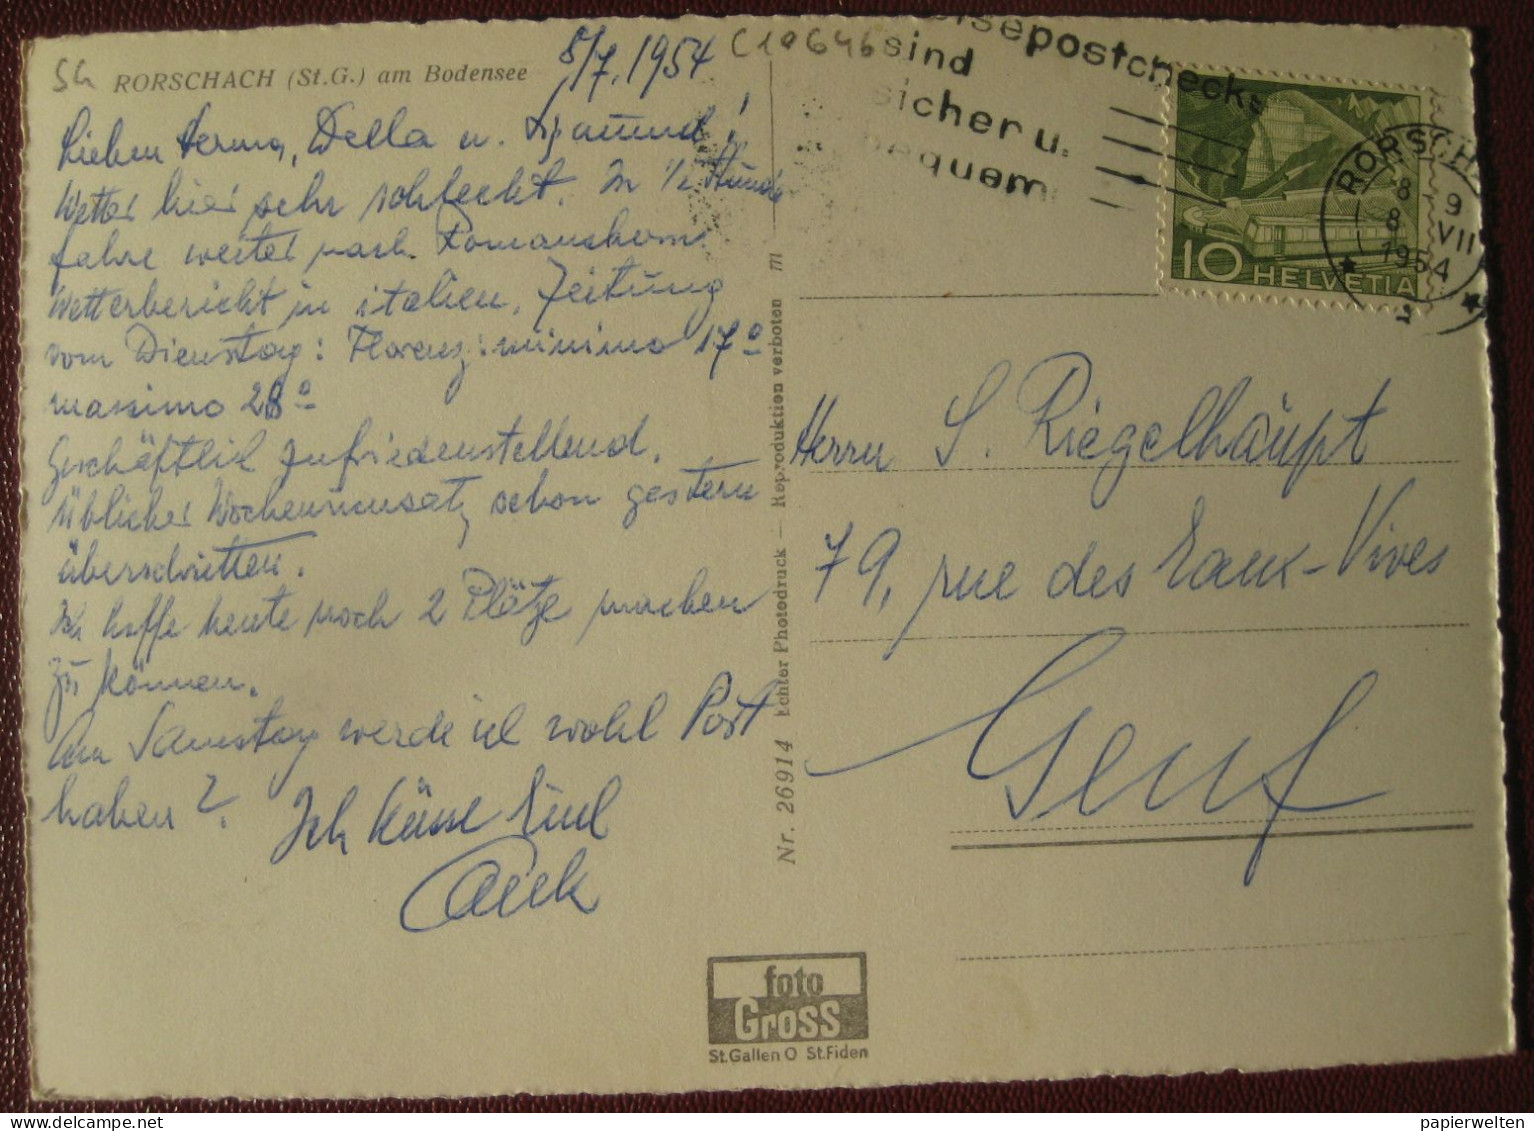 SG RORSCHACH (St.G.) am Bodensee
8/7. 1954
C10646
Lieben Herma, Della u. Sigmund!
Wetter hier sehr schlecht. In 1/2 Stunde
fahre weiter nach Romanshorn
Wetterbericht in italien. Zeitung
vom Dienstag: Florenz: minimo 17°
massimo 28°
Geschäftlich zufriedenstellend.
Üblicher Wochenumsatz schon gestern
überschritten.
Ich hoffe heute noch 2 Plätze machen
zu können.
Am Samstag werde ich wohl Post
haben?
Ich küsse Euch
Nr. 26914 Echter Photodruck — Reproduktion verboten m
sepostchecks
sind
sicher u.
bequem
10 HELVETIA
RORSCHA
8 9
8 VII
1954
2
Herrn S. Riegelhaupt
79, rue des Eaux-Vives
Genf
foto
Gross
St.Gallen O St.Fiden
papierwelten